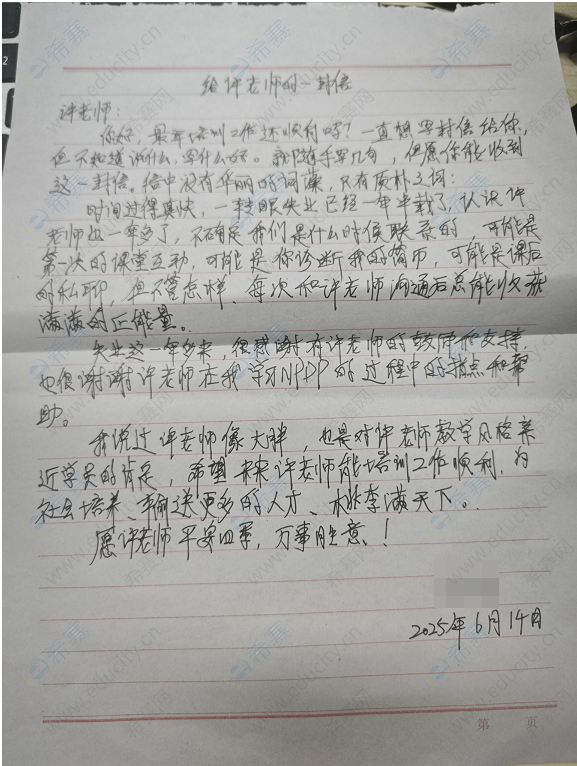 给许老师的一封信
许老师：
你好，最近培训工作还顺利吗？一直想写封信给你，
但不知道说什么，写什么好。就随手写几句，但愿你能收到
这一封信。信中没有华丽的词藻，只有质朴之词：
时间过得真快，一转眼失业已经一年半载了，认识许
老师也一年多了，不确定我们是什么时候联系的，可能是
第一次的课堂互动，可能是你诊断我的简历，可能是课后
的私聊，但不管怎样，每次和许老师沟通后总能收获
满满的正能量。
失业这一年多来，很感谢有许老师的鼓励和支持，
也很谢谢许老师在我学习NPDP的过程中的指点和帮
助。
我说过许老师像大胖，也是对许老师教学风格亲
近学员的肯定，希望未来许老师能培训工作顺利，为
社会培养、输送更多的人才、桃李满天下。
愿许老师平安四季，万事胜意！
2025年6月14日
第 页
希赛网
www.educity.cn